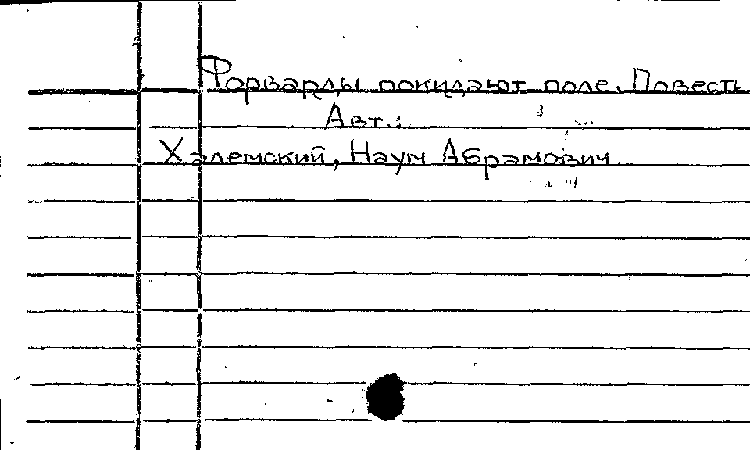 Форварды покидают поле. Повесть
Авт.:
Халемский, Наум Абрамович